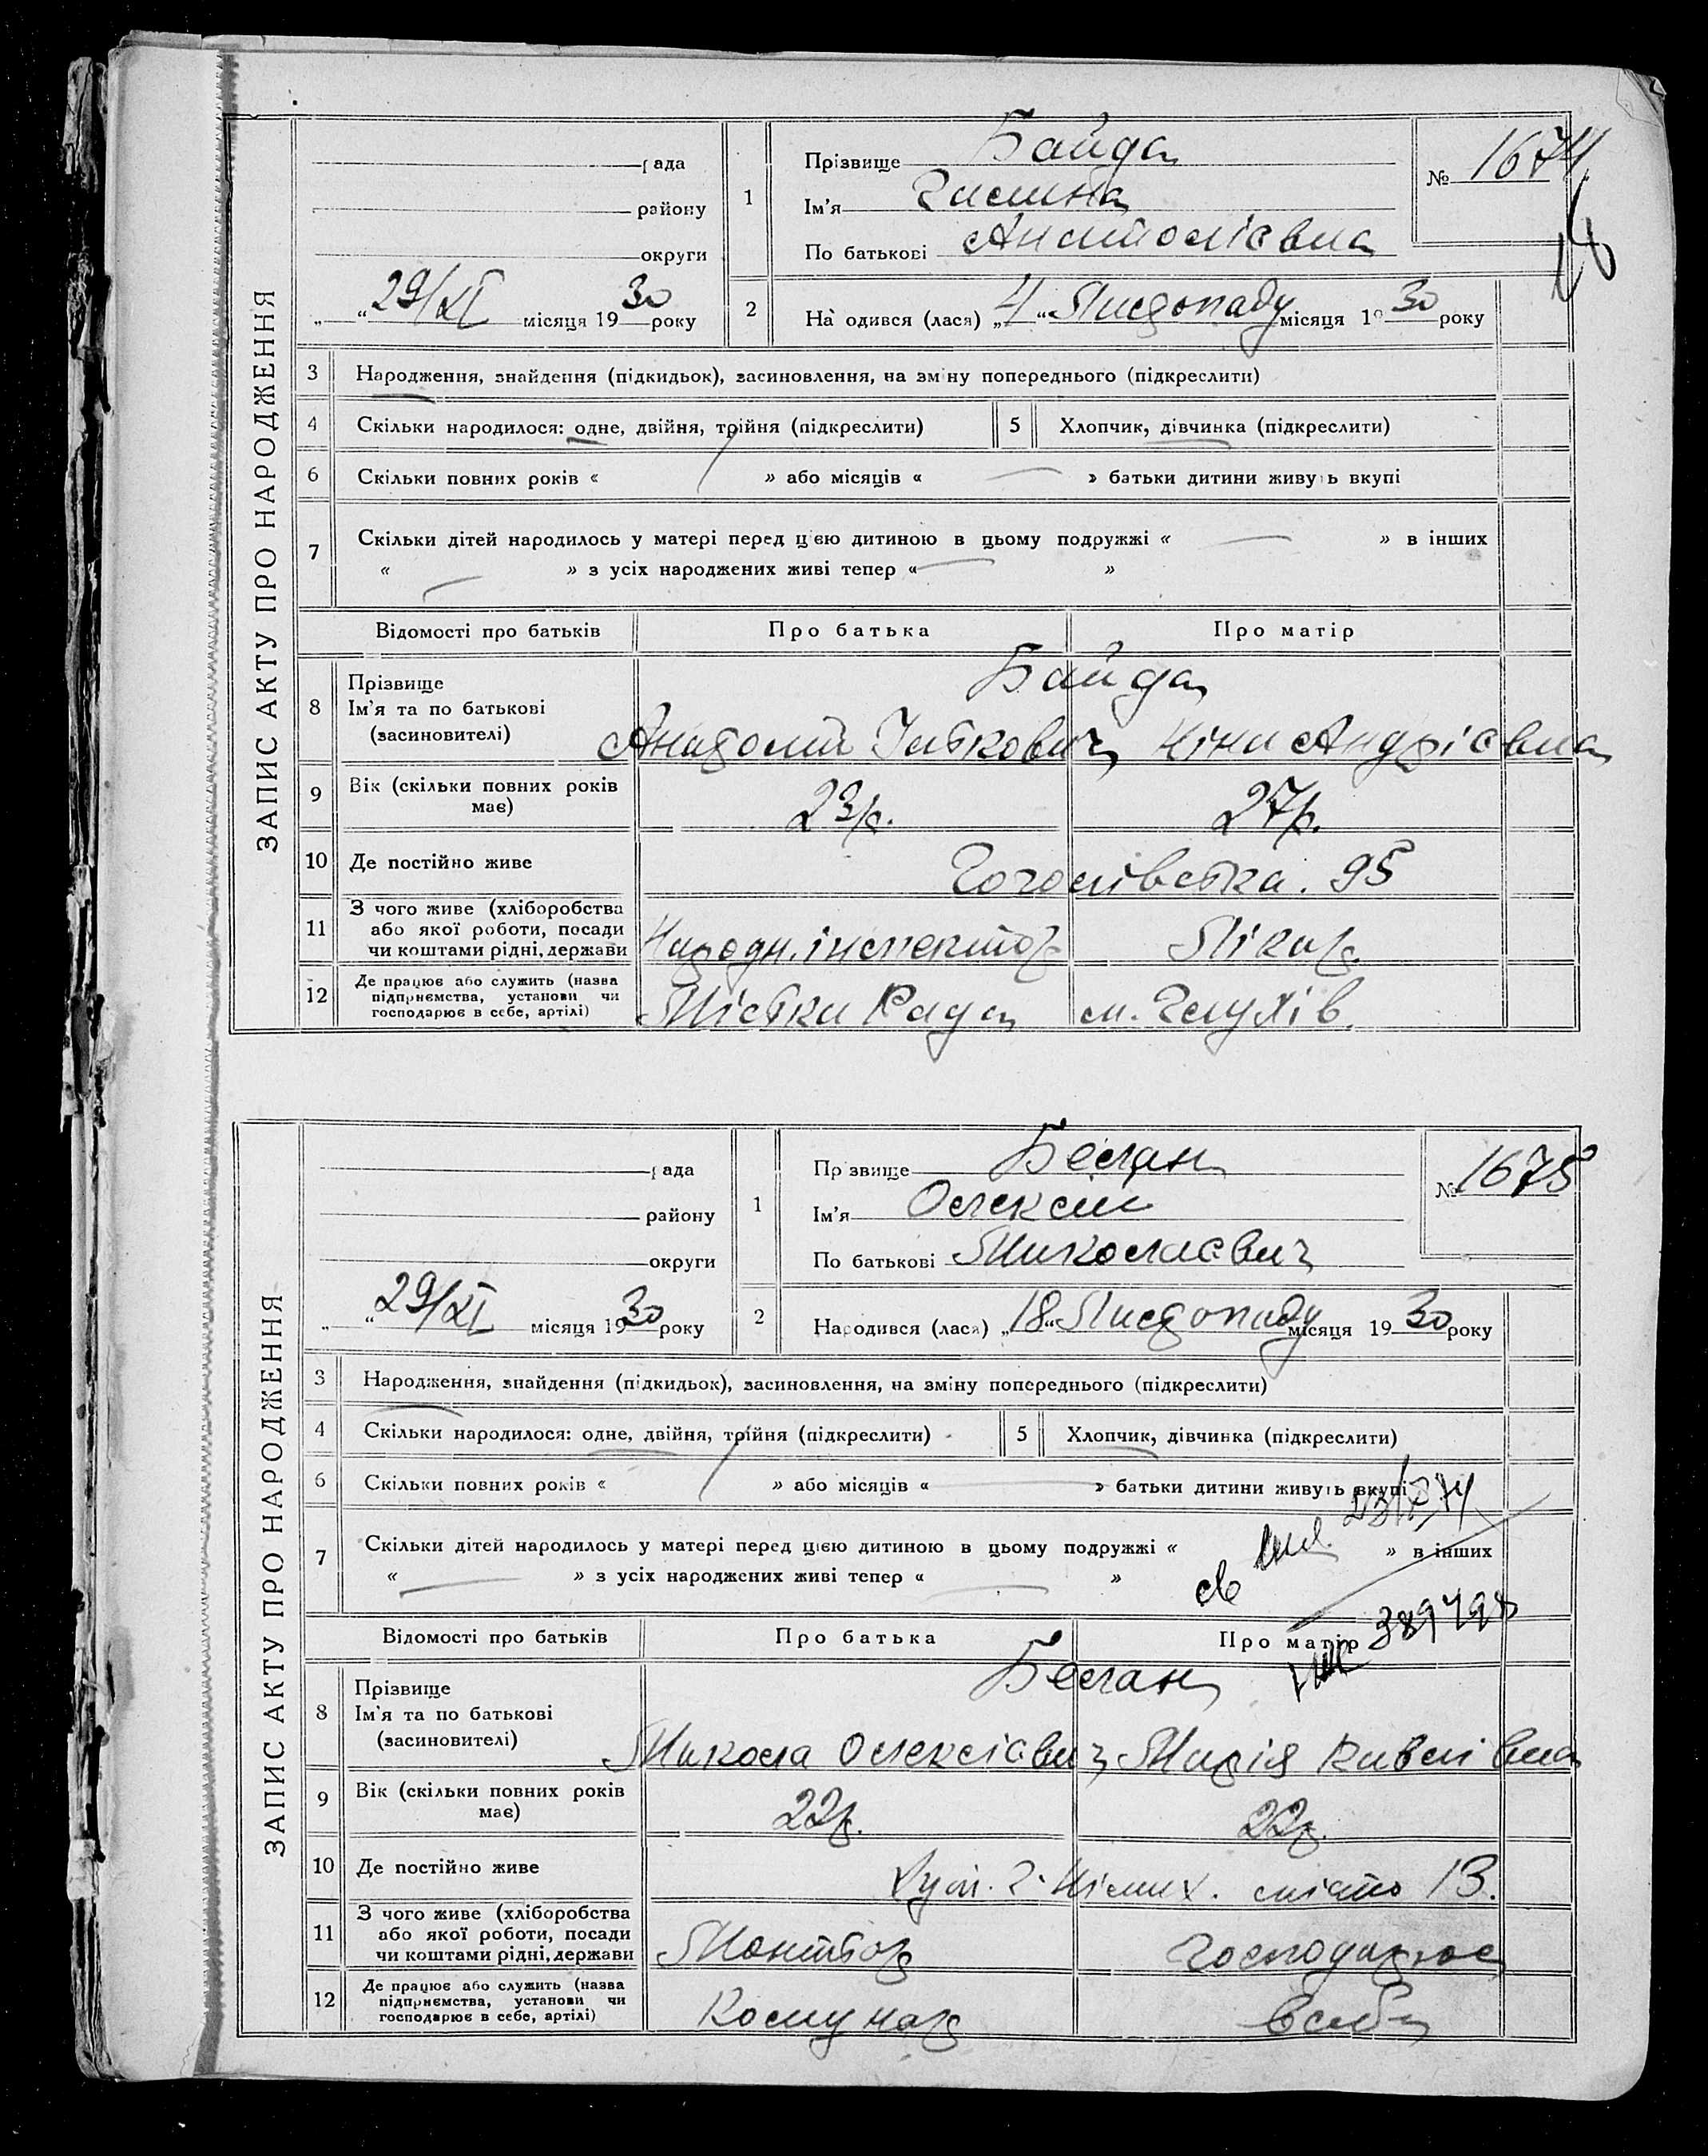 ЗАПИС АКТУ ПРО НАРОДЖЕННЯ
рада
району
округи
„ “ 29/XI місяця 1930 року
1
Прізвище Байда
Ім'я Галина
По батькові Анатоліївна
№ 1674
2
Народився (лася) „4“ Листопаду місяця 1930 року
3 Народження, знайдення (підкидьок), засиновлення, на зміну попереднього (підкреслити)
4 Скільки народилося: одне, двійня, трійня (підкреслити)
5 Хлопчик, дівчинка (підкреслити)
6 Скільки повних років « » або місяців « » батьки дитини живуть вкупі
7 Скільки дітей народилось у матері перед цією дитиною в цьому подружжі « » в інших
« » з усіх народжених живі тепер « »
Відомості про батьків Про батька Про матір
8 Прізвище
Ім'я та по батькові
(засиновителі)
Байда
Анатолій Ніна Андріївна
9 Вік (скільки повних років
має)
23р. 27р.
10 Де постійно живе
Гоголівська. 95
11 З чого живе (хліборобства
або якої роботи, посади
чи коштами рідні, держави
Народн. інспектор Лікар
12 Де працює або служить (назва
підприємства, установи чи
господарює в себе, артілі)
Міська Рада м. Глухів.
ЗАПИС АКТУ ПРО НАРОДЖЕННЯ
рада
району
округи
„ “ 29/XI місяця 1930 року
1
Прізвище Беглан
Ім'я Олексій
По батькові Миколаєвич
№ 1675
2
Народився (лася) „18“ Листопаду місяця 1930 року
3 Народження, знайдення (підкидьок), засиновлення, на зміну попереднього (підкреслити)
4 Скільки народилося: одне, двійня, трійня (підкреслити)
5 Хлопчик, дівчинка (підкреслити)
6 Скільки повних років « » або місяців « » батьки дитини живуть вкупі
7 Скільки дітей народилось у матері перед цією дитиною в цьому подружжі « » в інших
« » з усіх народжених живі тепер « »
389498
Відомості про батьків Про батька Про матір
8 Прізвище
Ім'я та по батькові
(засиновителі)
Беглан
Микола Олексієвич Марія
9 Вік (скільки повних років
має)
22р. 22р.
10 Де постійно живе
місто 13.
11 З чого живе (хліборобства
або якої роботи, посади
чи коштами рідні, держави
Монтьор Господарює
12 Де працює або служить (назва
підприємства, установи чи
господарює в себе, артілі)
Комунар всебе